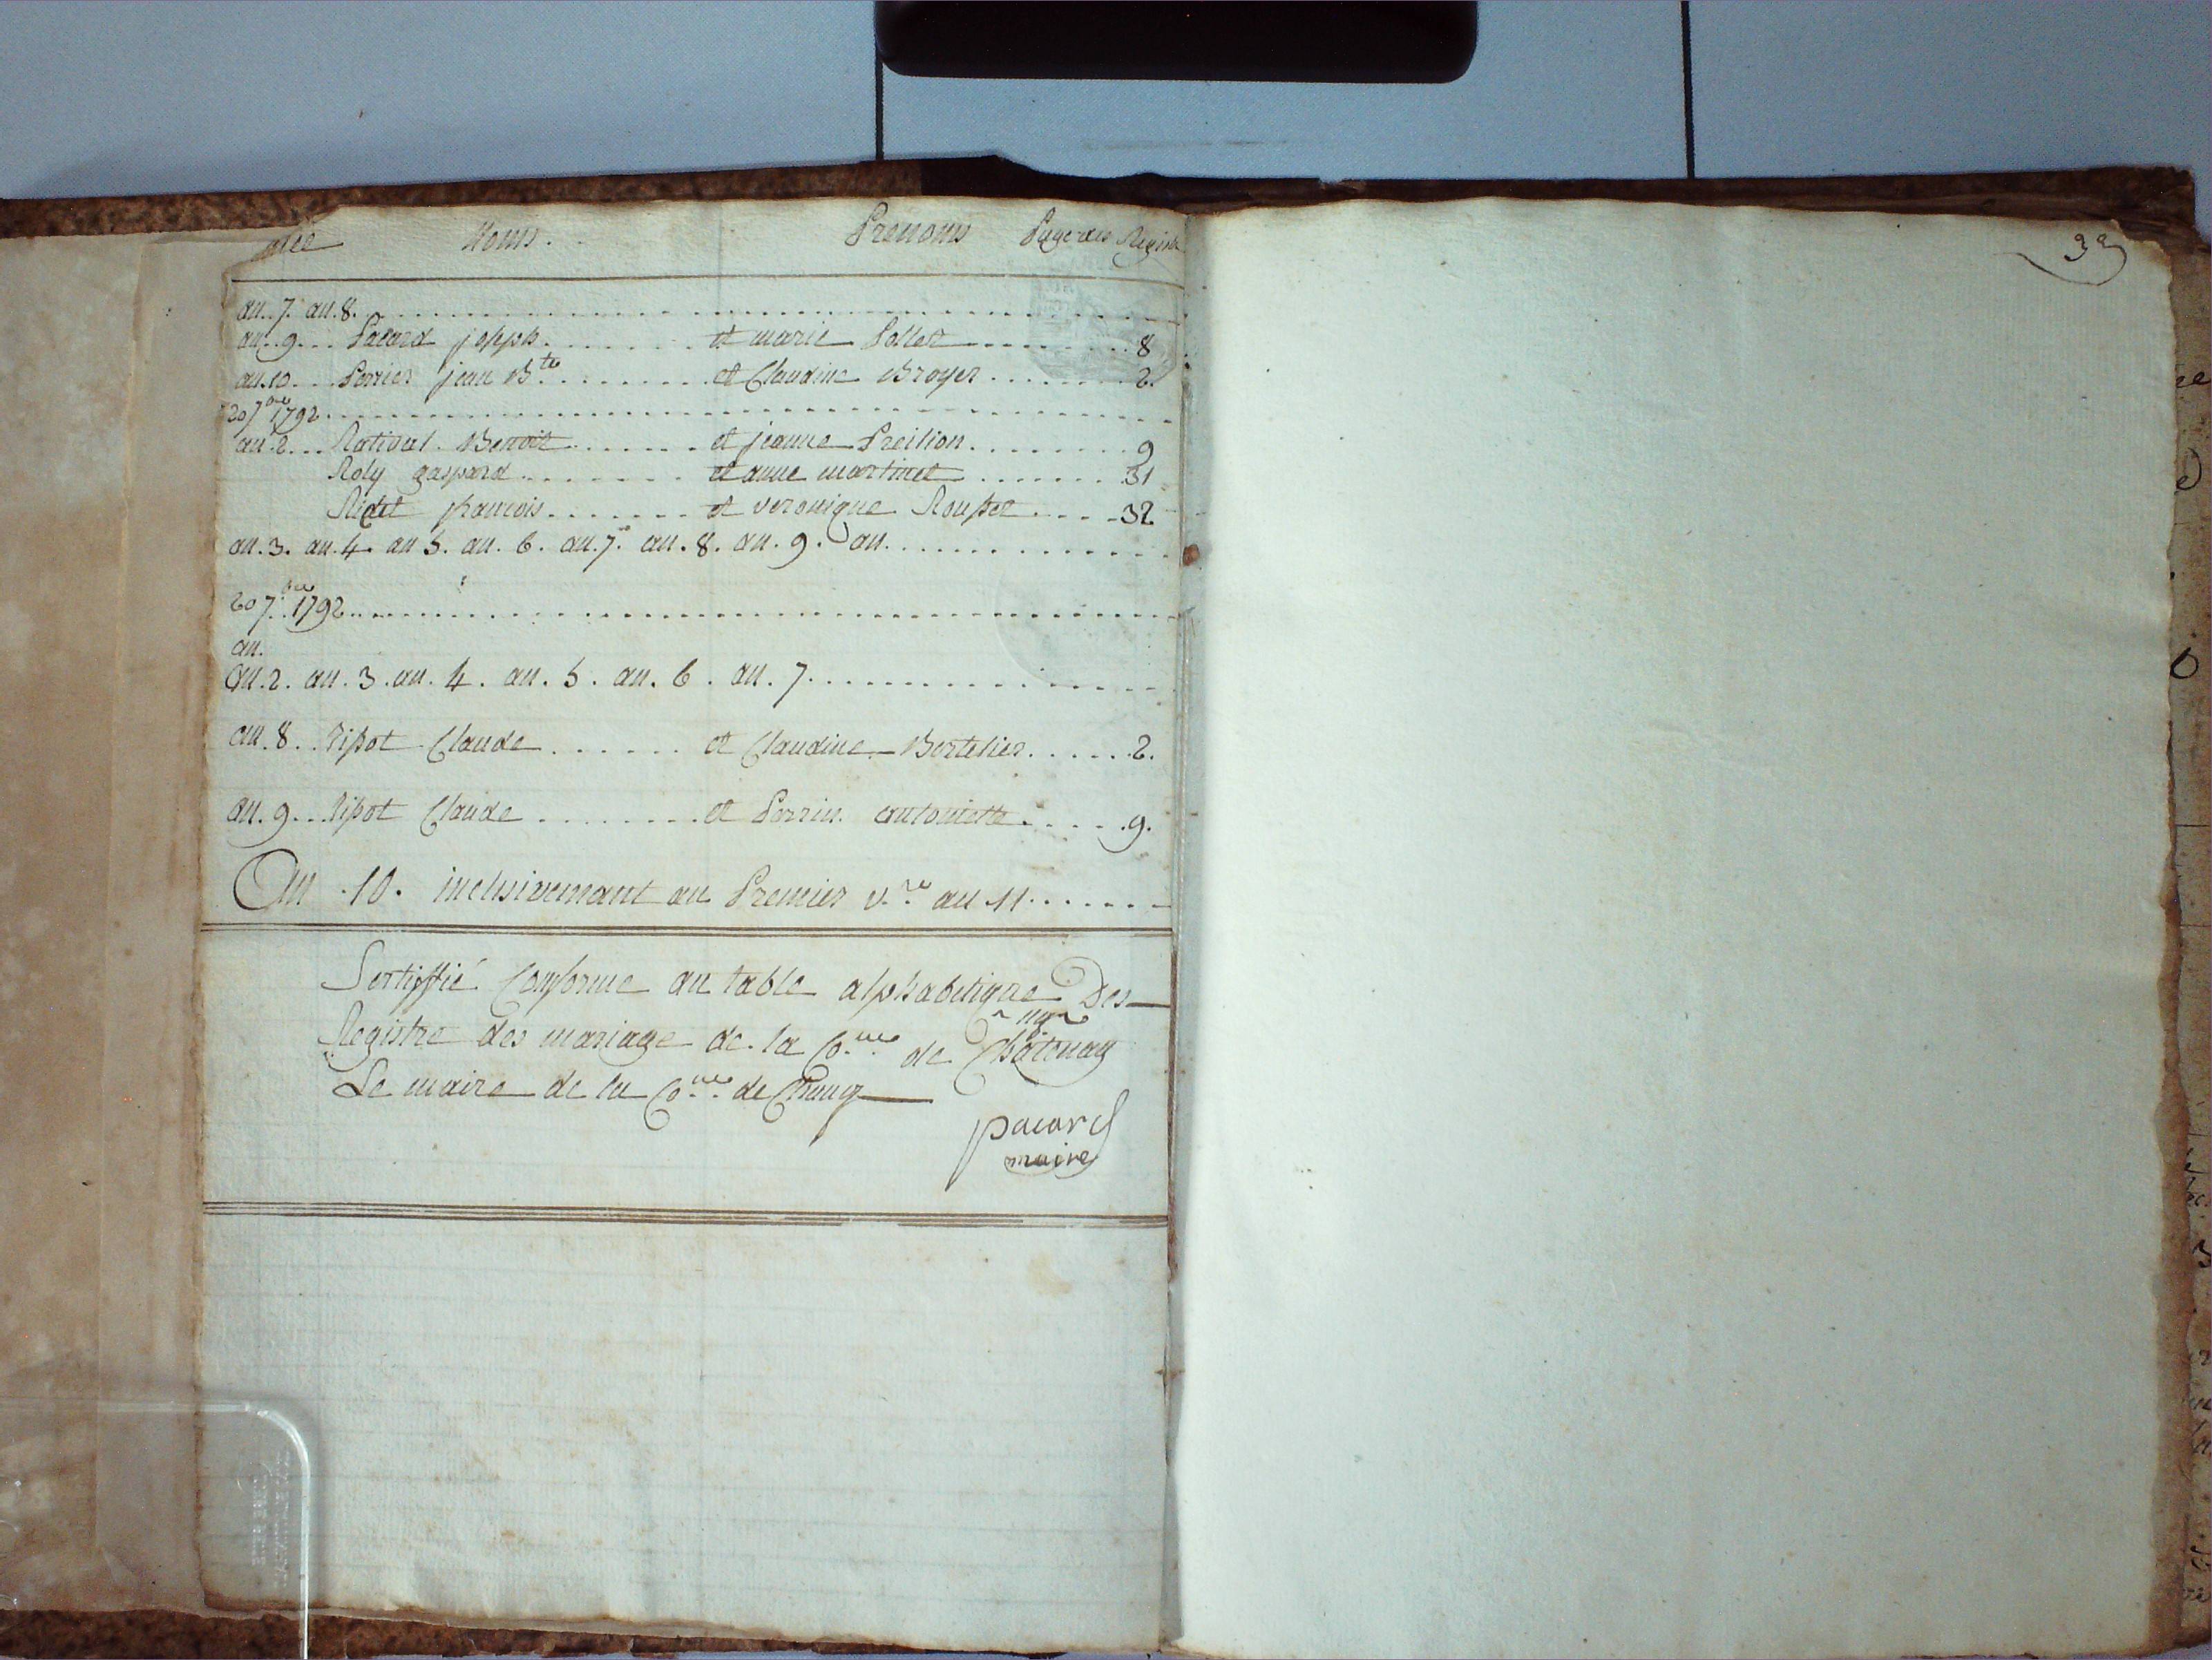 née Noms. Prenoms Page des Registre
an. 7. an. 8.
an. 9... Pacard joseph et marie Pollet 8
an. 10... Perrier jean B.te et Claudine Broyer 2.
20 7bre 1792
an. 2... Benoit et jeanne 9
Roly gaspard et anne martinet 31
Ridet francois et veronique Rousset 32
an. 3. an. 4. an 5. an. 6. an. 7. an. 8. an. 9. an.
20 7bre 1792
an.
an. 2. an. 3. an. 4. an. 5. an. 6. an. 7.
an. 8. Tissot Claude et Claudine Bertelier 2.
an. 9... Tissot Claude et Perrin antoinette 9.
An 10. inclusivemant au Premier v.re an 11
Sertiffié Conforme au table alphabetique Des
Registre des mariage de la Co.ne de Châtenay
Le maire de la Co.ne de
pacard
maire